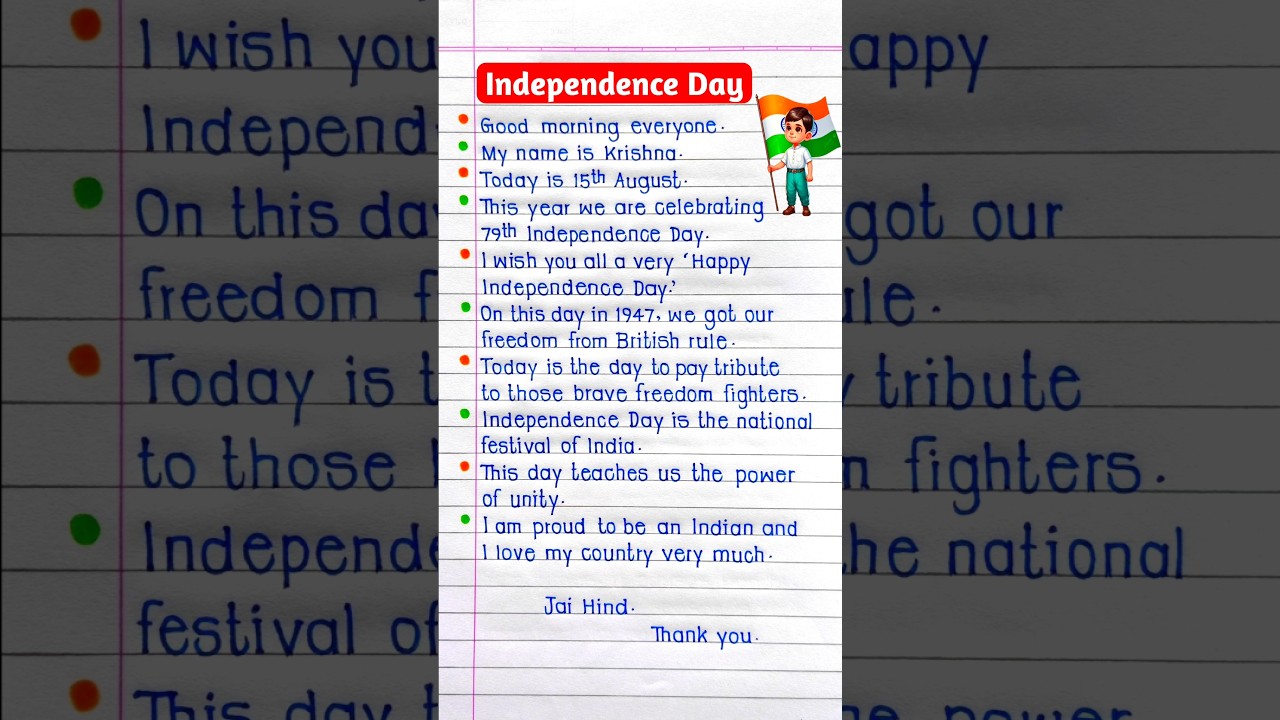 Independence Day
Good morning everyone.
My name is Krishna.
Today is 15th August.
This year we are celebrating
79th Independence Day.
I wish you all a very ‘Happy
Independence Day.’
On this day in 1947, we got our
freedom from British rule.
Today is the day to pay tribute
to those brave freedom fighters.
Independence Day is the national
festival of India.
This day teaches us the power
of unity.
I am proud to be an Indian and
I love my country very much.
Jai Hind.
Thank you.